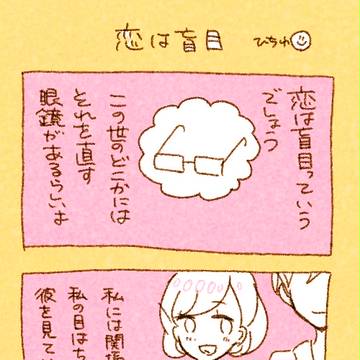 恋は盲目
ぴちゅ
恋は盲目っていう
でしょう
この世のどこかには
それを直す
眼鏡があるらしいよ
私には関係
私の目はち
彼を見てい